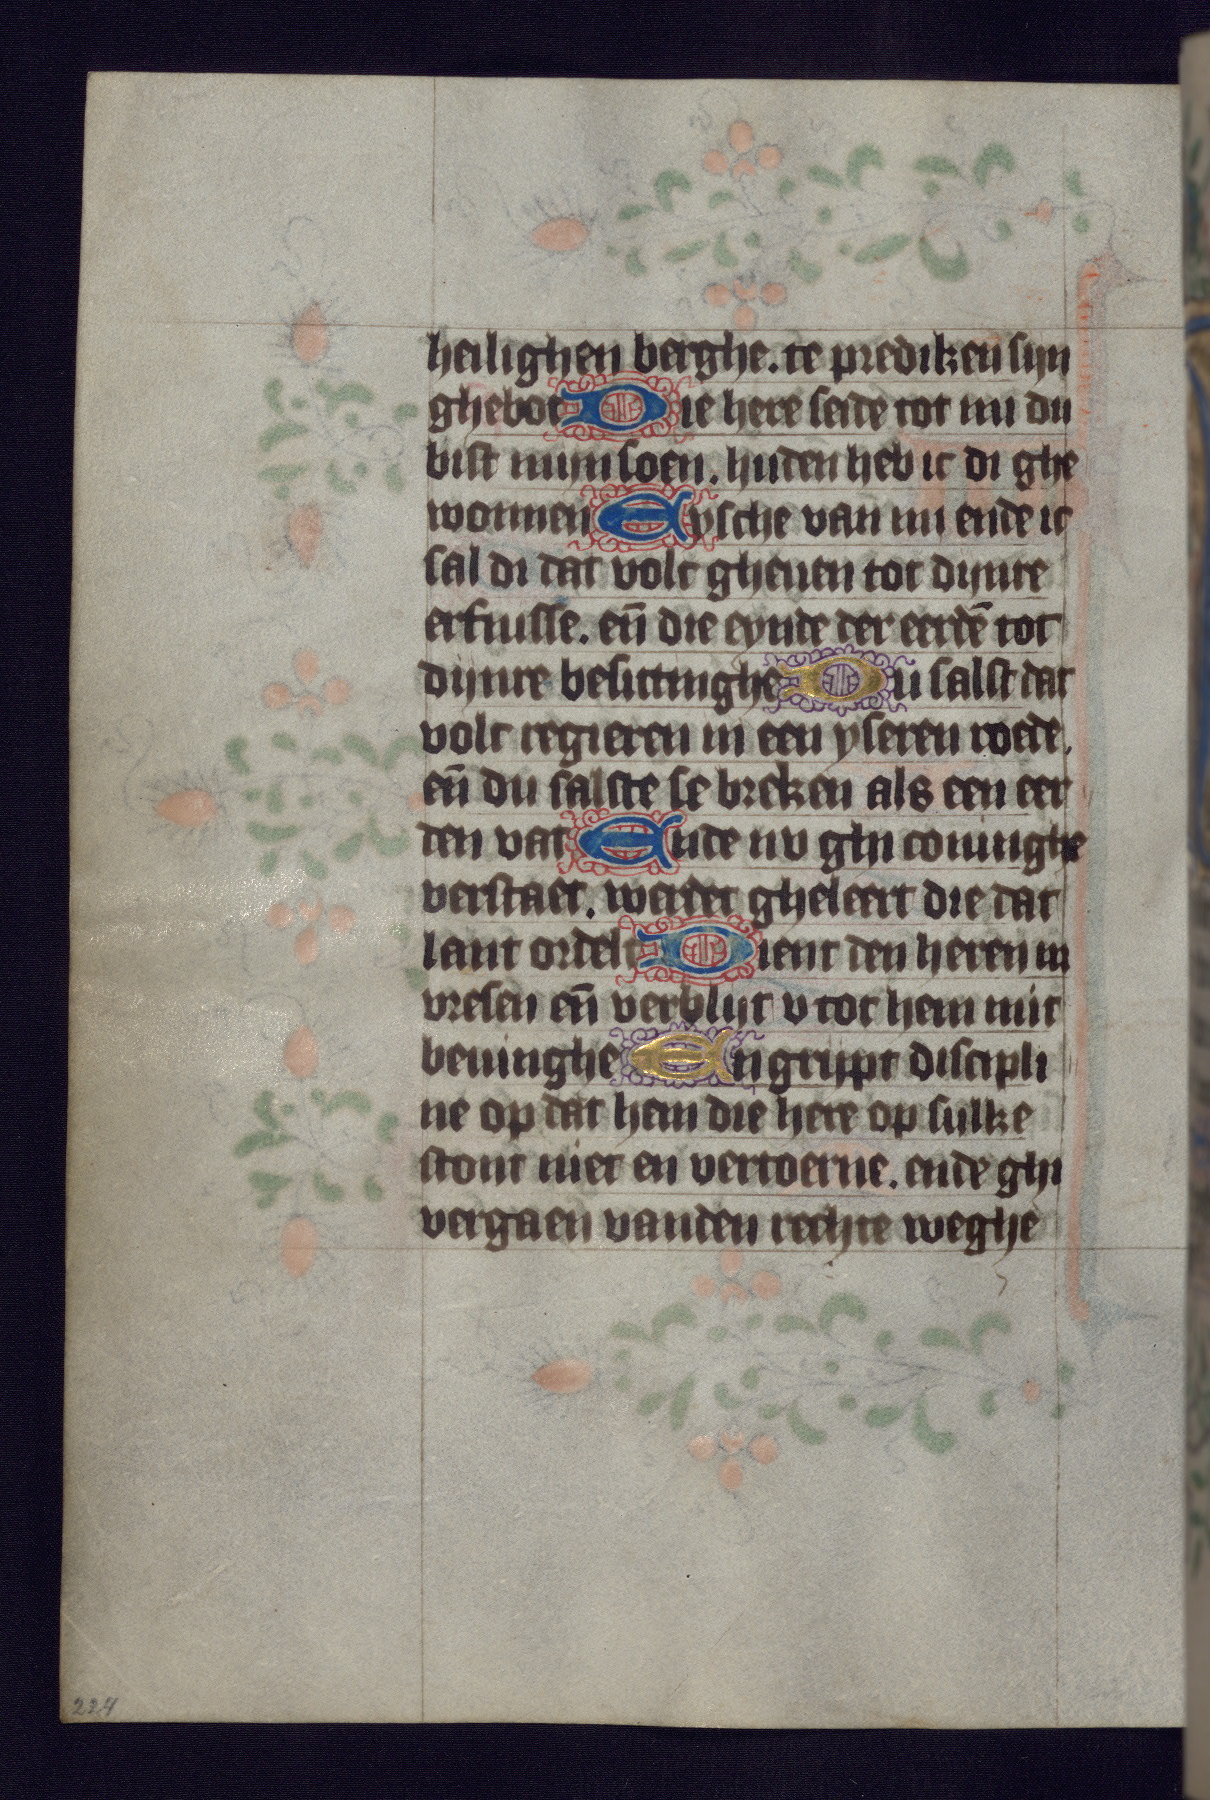 heilighen berghe. te prediken sijn
ghebot Die here seide tot mi du
bist mijn soen. huden heb ic di ghe
wonnen Eysche van mi ende ic
sal di dat volc gheuen tot dijnre
erfnisse. en̄ die eynde der eerdē tot
dijnre besittinghe Du salst dat
volc regieren in een yseren roede.
en̄ du salste se breken als een eer
den vat Ende nv ghi coninghe
verstaet. werdet gheleert die dat
lant ordelt Dient den heren in
vresen en̄ verblijt v tot hem mit
beuinghe En gript discipli
ne op dat hem die here op sulke
stont niet en vertoerne. ende ghi
vergaen vanden rechte weghe
224